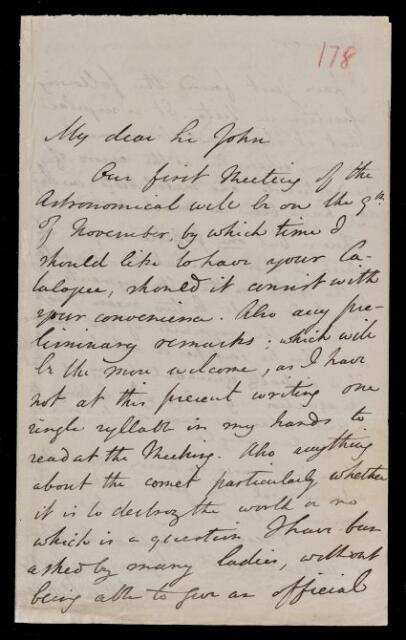 178
My dear Sir John
Our first Meeting of the
Astronomical will be on the 9th
of November, by which time I
should like to have your Ca-
talogue, should it consist with
your convenience. Also any pre-
liminary remarks: which will
be the more welcome, as I have
not at this present writing one
single syllable in my hands to
read at the Meeting. Also anything
about the comet particularly whether
it is to destroy the world or no
which is a question I have been
asked by many ladies, without
being able to give an official